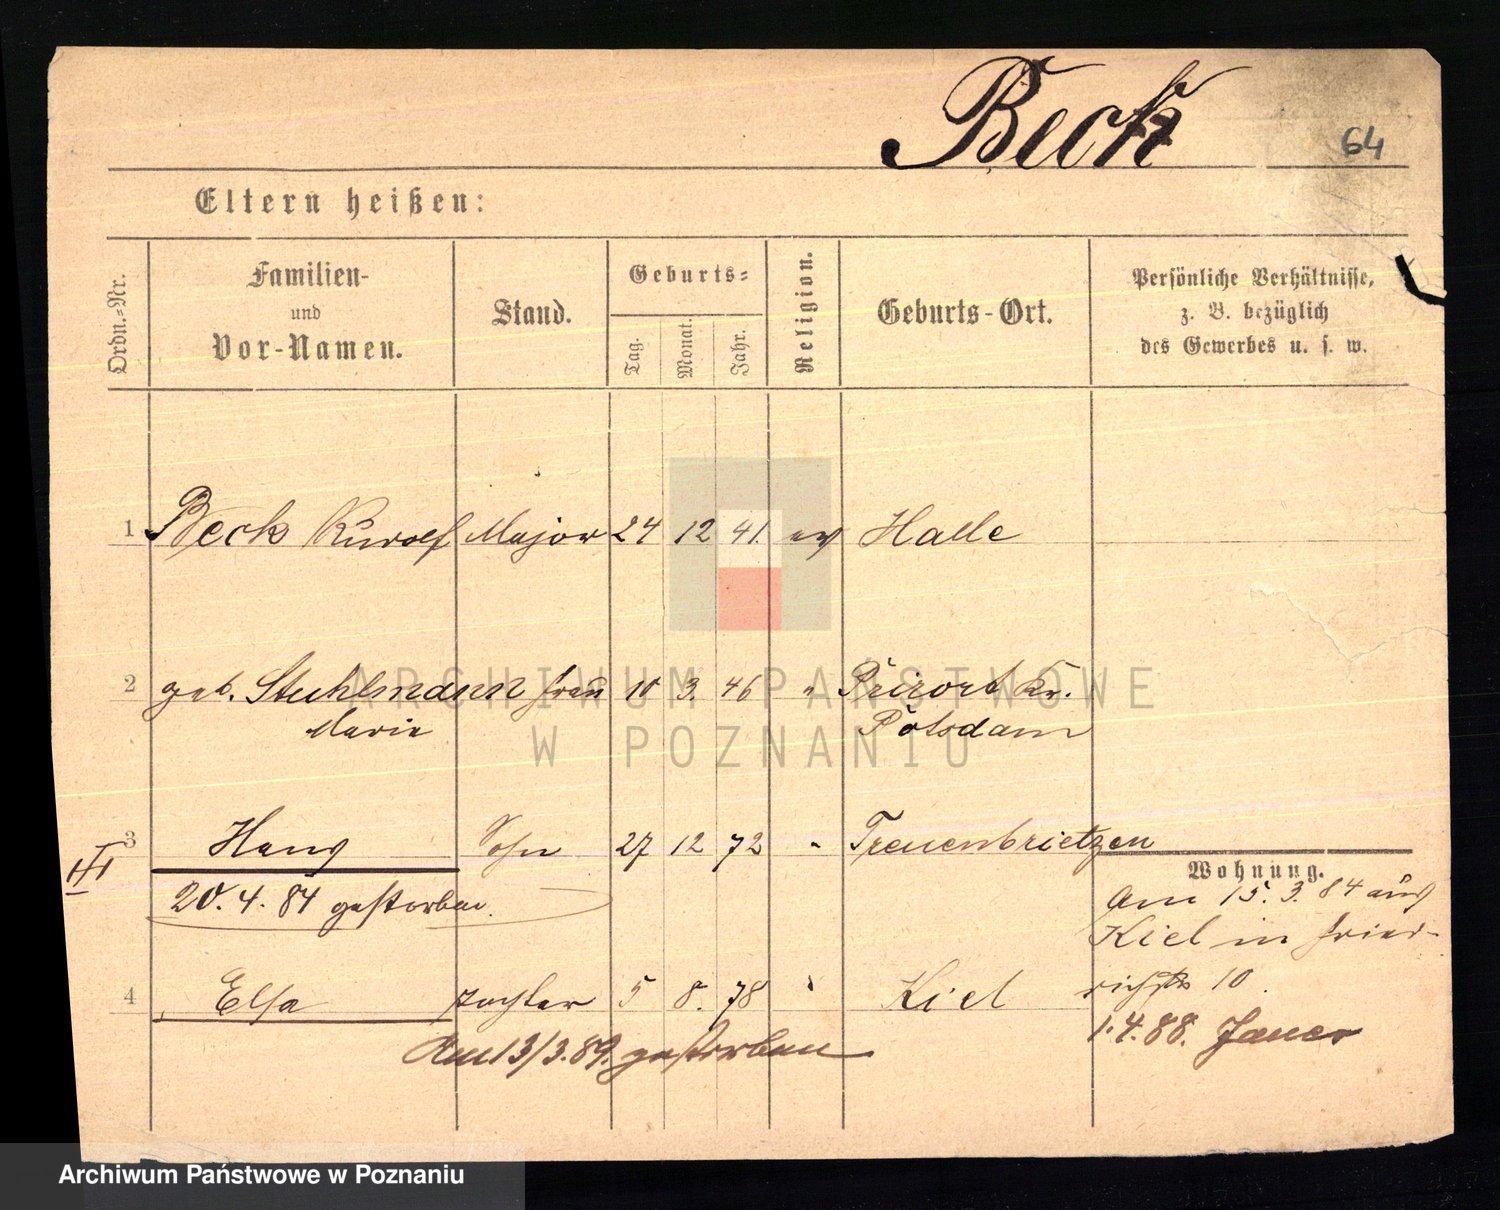 Beck
64
Eltern heißen:
Ordn.-Nr.
Familien-
und
Vor-Namen.
Stand.
Geburts-
Tag.
Monat.
Jahr.
Religion.
Geburts-Ort.
Persönliche Verhältnisse,
z. B. bezüglich
des Gewerbes u. s. w.
1 Beck Rudolf Major 24 12 41. ev Halle
2 geb. Stuhlmann Frau 10 3. 46 " Priort Kr.
Marie Potsdam
3 Hans Sohn 27 12 72 " Treuenbrietzen
III
Wohnung.
20. 4. 84 gestorben.
Am 15. 3. 84 aus
Kiel in Fried-
richstr 10.
4 Elsa Tochter 5 8. 78 " Kiel
1.4.88.
Am 13/3.89. gestorben
ARCHIWUM PAŃSTWOWE
W POZNANIU
Archiwum Państwowe w Poznaniu